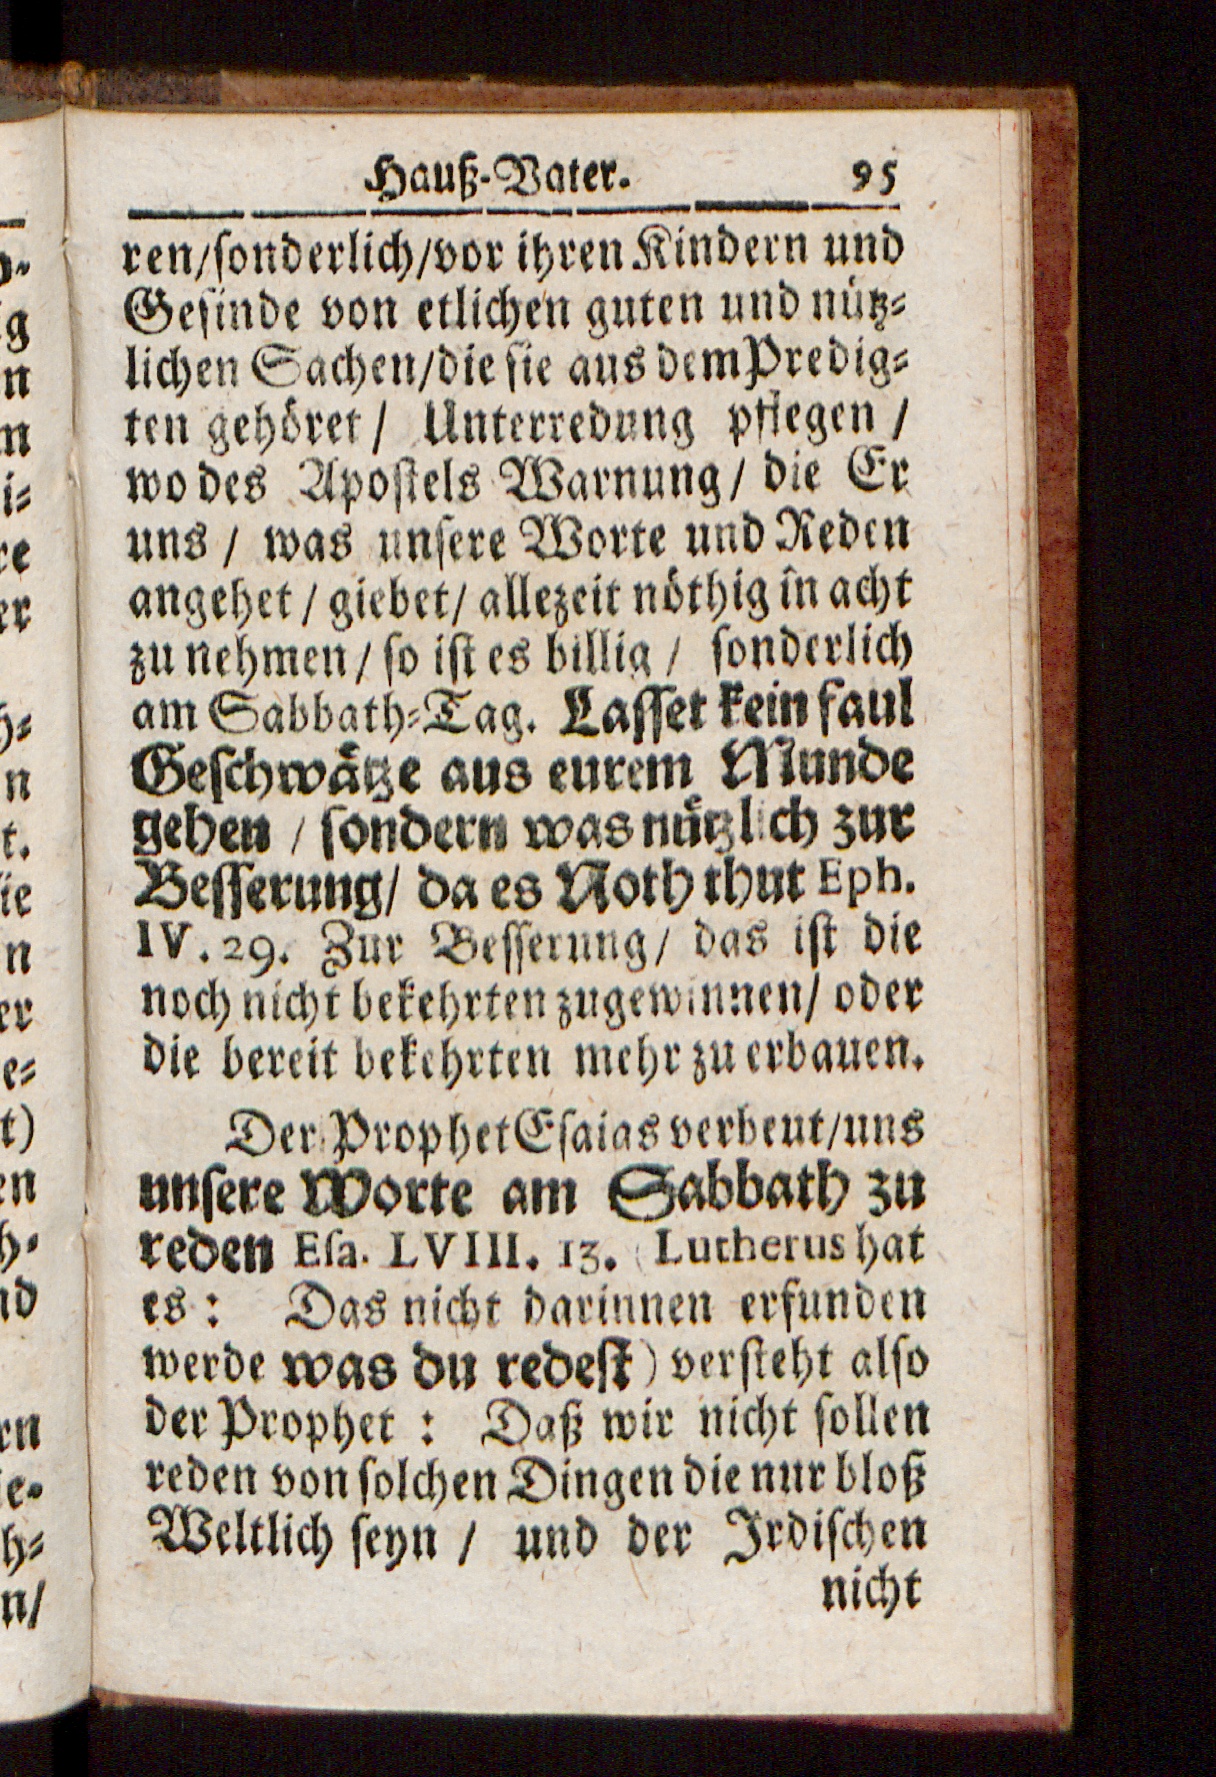 Hauß-Vater. 95
ren/ſonderlich/vor ihren Kindern und
Geſinde von etlichen guten und nütz-
lichen Sachen/die ſie aus dem Predig-
ten gehöret/ Unterredung pflegen/
wo des Apoſtels Warnung/ die Er
uns/ was unſere Worte und Reden
angehet/ giebet/ allezeit nöthig in acht
zu nehmen/ ſo iſt es billig/ ſonderlich
am Sabbath-Tag. Laſſet kein faul
Geſchwätze aus eurem Munde
gehen/ ſondern was nützlich zur
Beſſerung/ da es Noth thut Eph.
IV. 29. Zur Beſſerung/ das iſt die
noch nicht bekehrten zugewinnen/ oder
die bereit bekehrten mehr zu erbauen.
Der Prophet Eſaias verbeut/uns
unſere Worte am Sabbath zu
reden Eſa. LVIII. 13. (Lutherus hat
es: Das nicht darinnen erfunden
werde was du redeſt) verſteht alſo
der Prophet: Daß wir nicht ſollen
reden von ſolchen Dingen die nur bloß
Weltlich ſeyn/ und der Irdiſchen
nicht